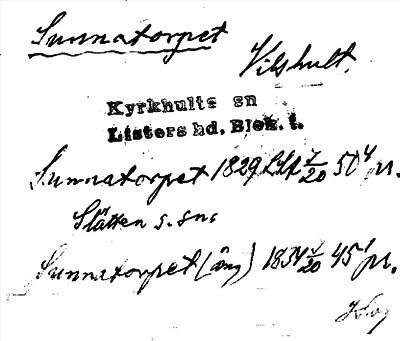 Sunnatorpet
Vilshult.
Kyrkhults sn
Listers hd. Blek. l.
Sunnatorpet 1829 LSA 7/20 50 4 pr.
Slätten s. sns
Sunnatorpet (äng) 1834 7/20 45 1 pr.